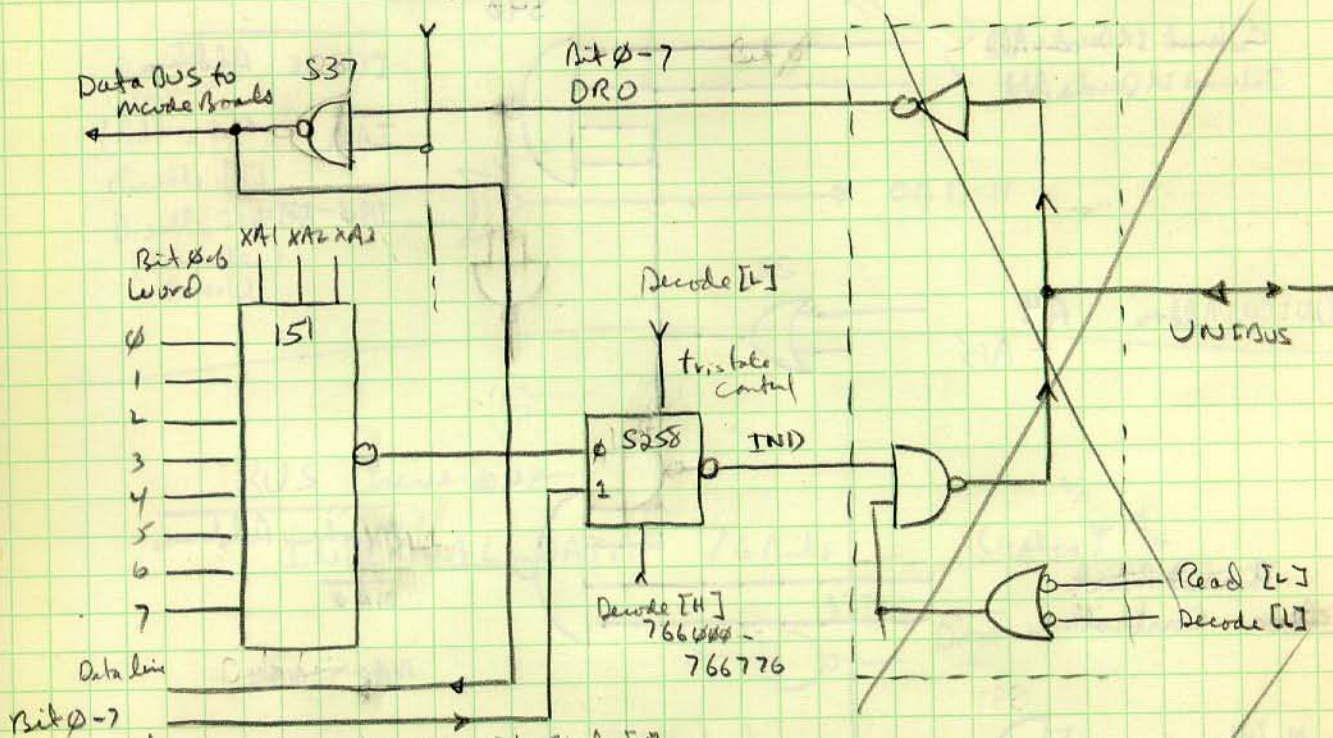 Data BUS to
mcode Boards
S37
Bit Ø-7
DRO
XA1 XA2 XA3
Bit Ø-6
Word
151
Ø
1
2
3
4
5
6
7
Decode [L]
tristate
control
S258
Ø
1
IND
Decode [H]
766ØØØ-
766776
UNIBUS
Read [L]
Decode [L]
Data line
Bit Ø-7